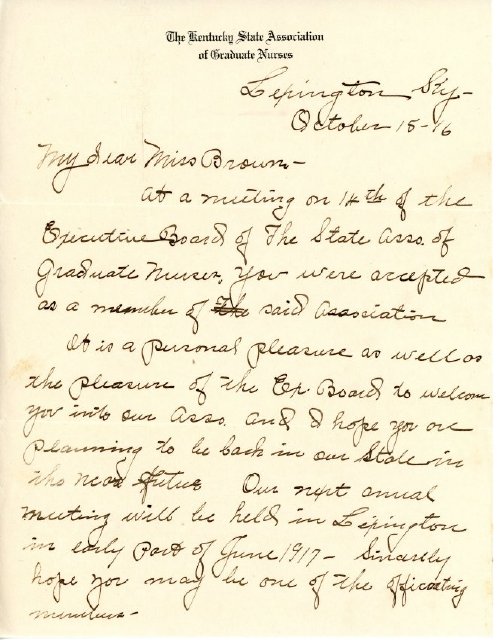 The Kentucky State Association
of Graduate Nurses
Lexington Ky-
October 15-16
My dear Miss Brown-
At a meeting on 14th of the
Executive Board of The State Asso. of
Graduate Nurses, you were accepted
as a member of the said Association
It is a personal pleasure as well as
the pleasure of the Ex Board to welcome
you into our Asso. and I hope you are
planning to be back in our State in
the near future Our next annual
meeting will be held in Lexington
in early Part of June 1917- Sincerely
hope you may be one of the officiating
members-